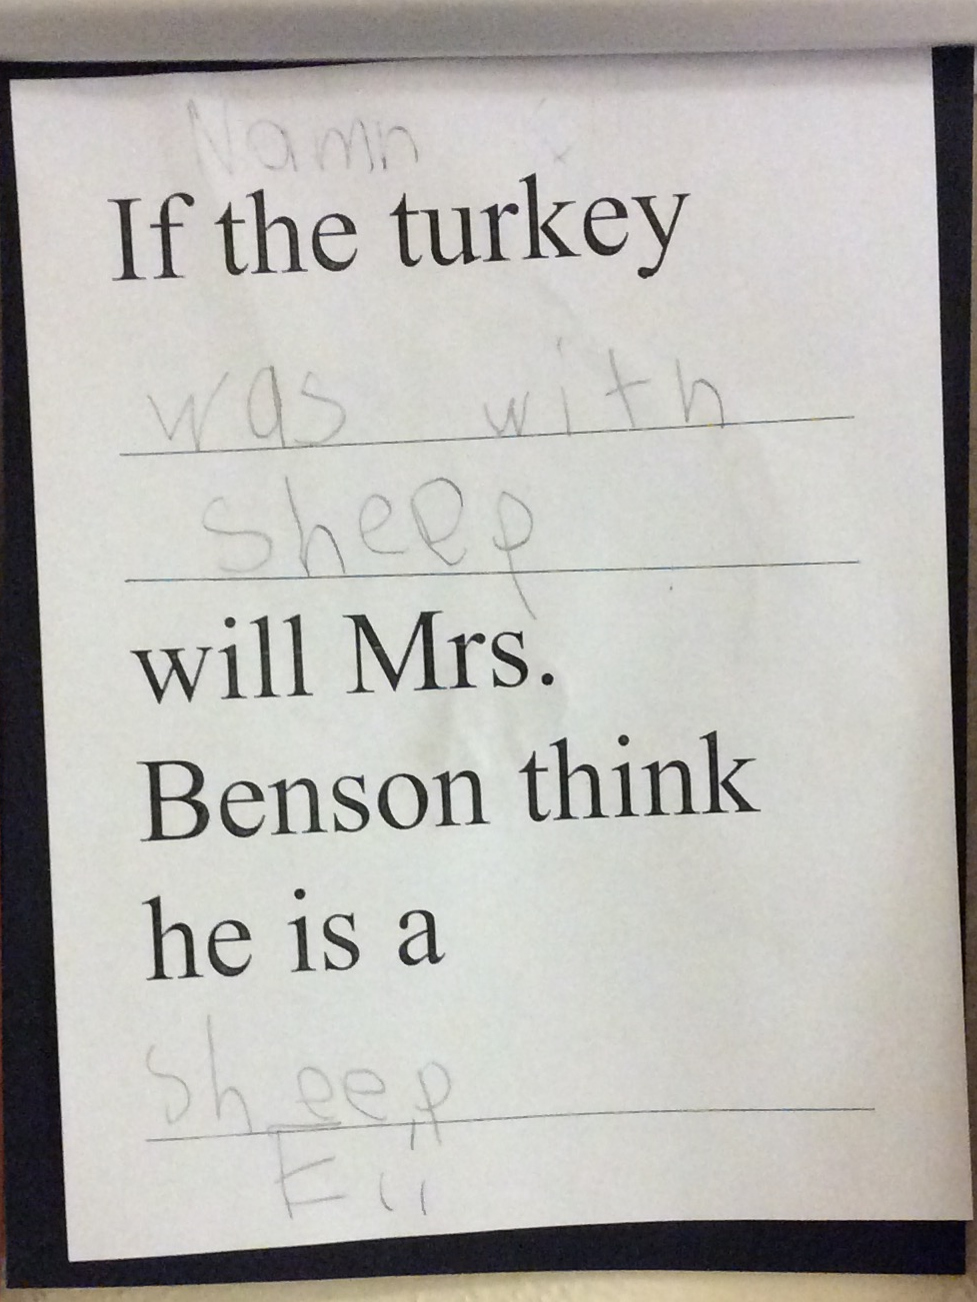 Namn
If the turkey
was with
sheep
will Mrs.
Benson think
he is a
sheep